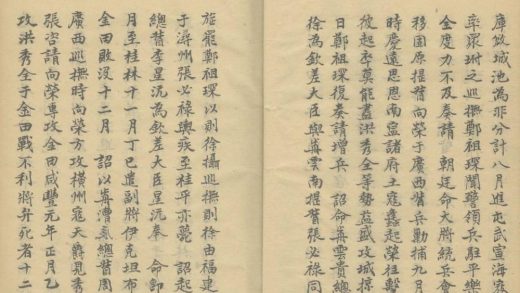 庫攻城池為非分計八月進屯武宣海寇
率眾之巡撫鄭祖琛聞警領兵駐平樂
金度力不及奏請 朝廷命大將統兵會
移固原提督向榮于廣西督兵勦捕九月
時慶遠思恩南諸府土寇蠭起榮往擊
彼起李莫能盡洪秀全等勢益盛攻城掠
日鄭祖琛復奏請增兵 詔命雲貴總
徐為欽差大臣與雲南提督張必祿同
旌罷鄭祖琛以則徐攝巡撫則徐由福建
于潯州張必祿輿疾至桂平亦薨 詔起
總督李星沅為欽差大臣星沅奉 命卽
月至桂林十一月丁巳遣副將伊克坦布
金田敗沒十二月 詔以漕總督周
廣西巡撫時向榮方攻橫州寇天爵見秀
張咨請向榮專攻金田咸豐元年正月乙
攻洪秀全于金田戰不利將弁死者十二